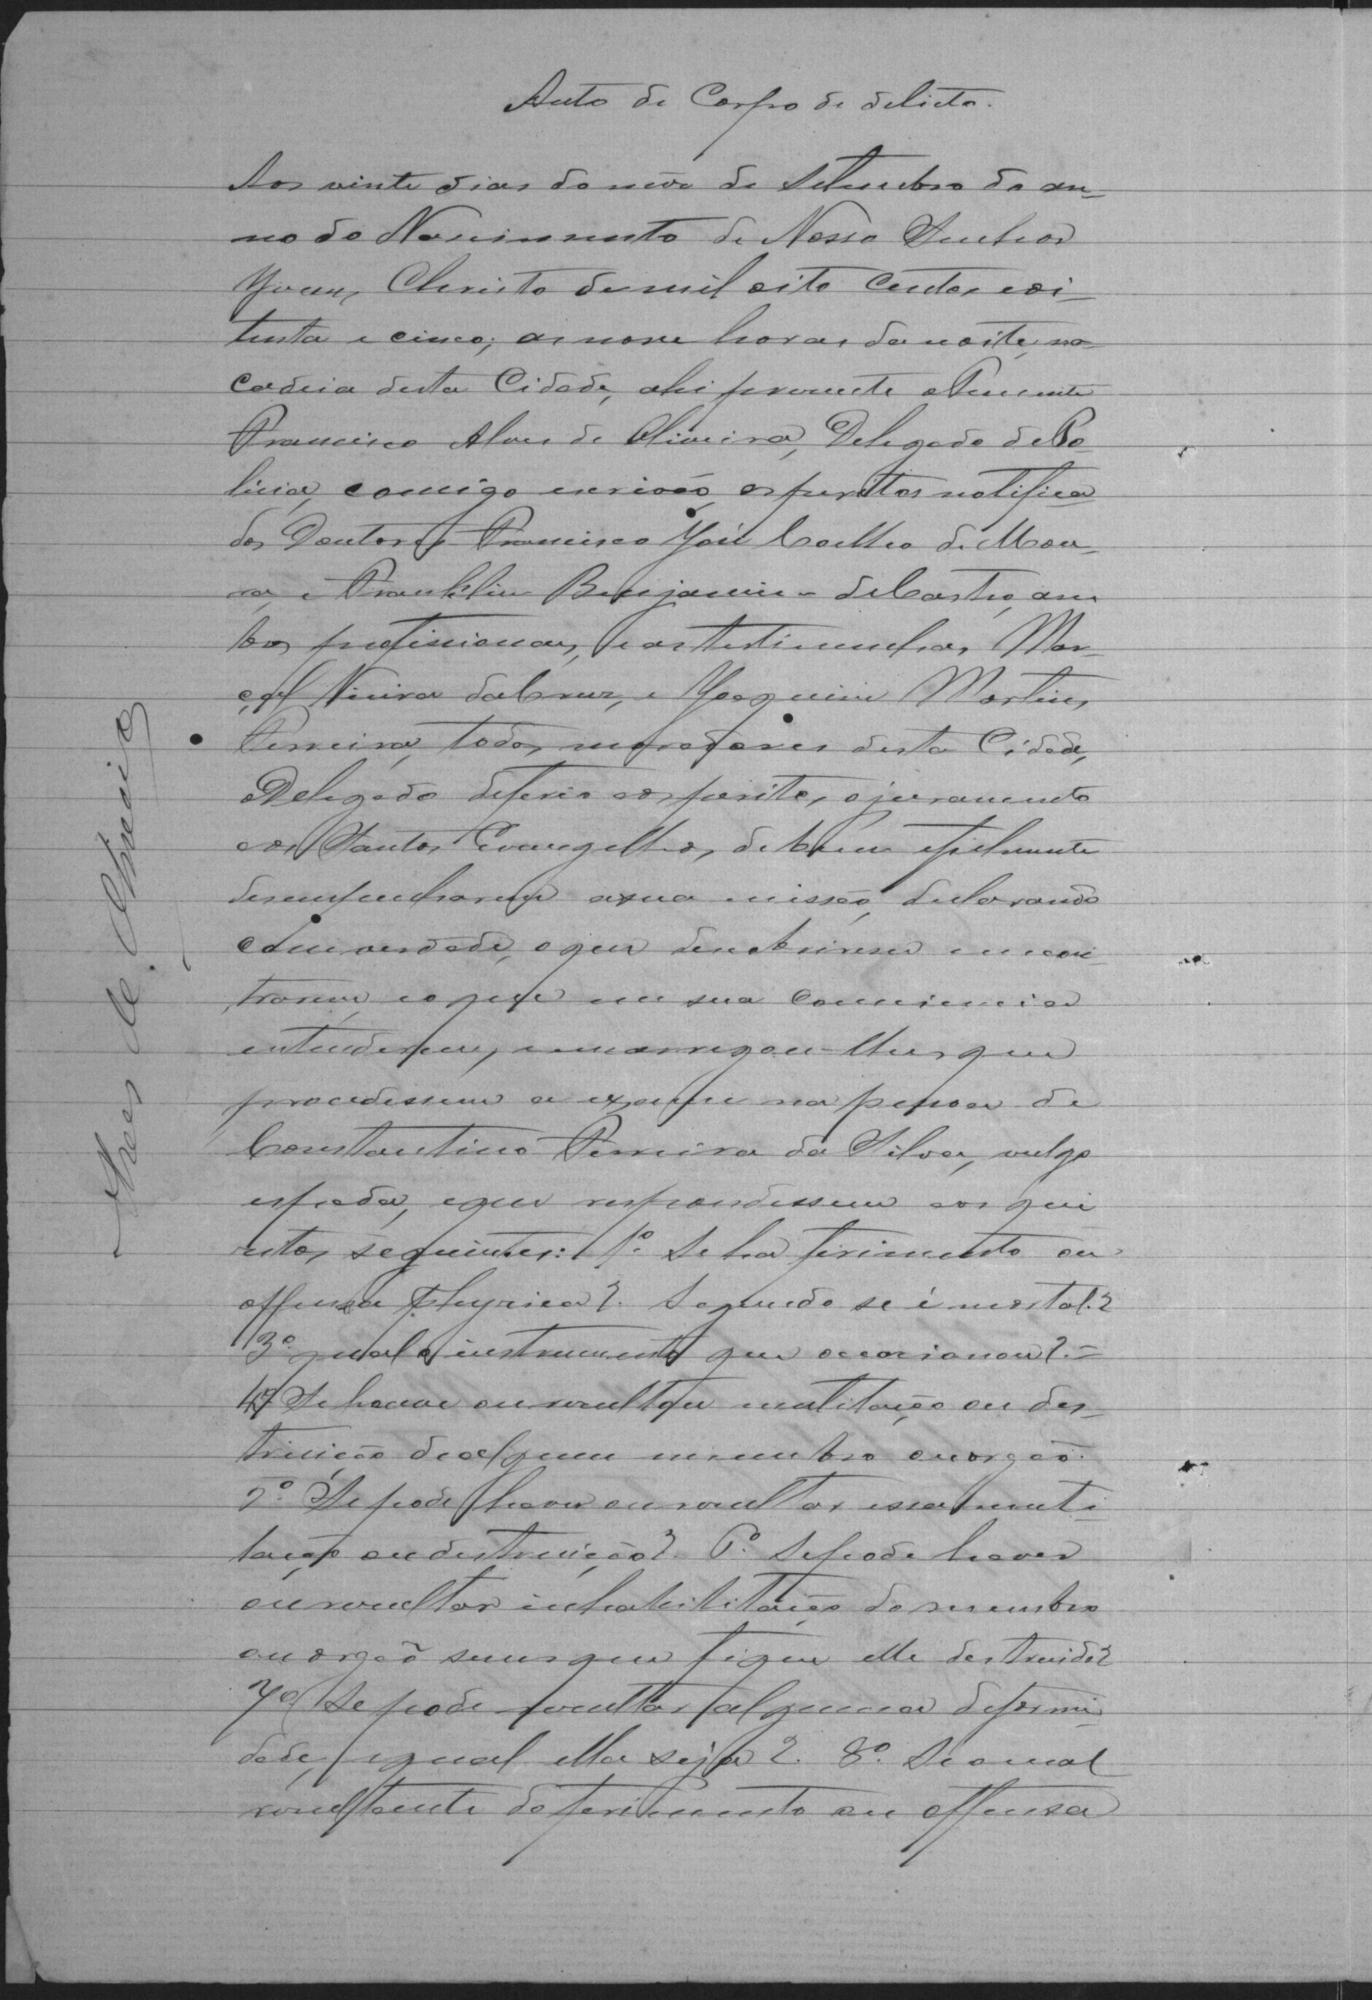 Auto de Corpo de delicto.
Aos vinte dias do mez de Setembro do an-
no do Nascimento de Nosso Senhor
Jesus Christo de mil oito centos e oi-
tenta e cinco; as nove horas da noite, na
cadeia desta Cidade, ahi presente o Tenente
Francisco Alves de Oliveira, Delegado de Po-
licia, comigo escrivão, os peritos notifica-
dos Doutores Francisco José Coelho de Mou-
ra, e Franklin Benjamin de Castro, am
bos profissionaes, e as testimunhas, Mar-
çal Vieira da Cruz, e Joaquim Martins
Ferreira, todos moradores desta Cidade,
o Delegado deferio aos peritos, o juramento
aos Santos Evangelhos, de bem e fielmente
desempenharem a sua missão, declarando
com verdade, o que descobrirem e encon-
trarem, e o que em sua consciencia
entenderem, e encarregou-lhes que
procedessem a exame na pessoa de
Constantino Ferreira da Silva, vulgo
espada, e que respondessem aos quei
sitos seguintes: 1º Se ha ferimento ou
offensa physica? Segundo se é mortal?
3º qual o instrumento que occasionou? =
4º Se houve ou resultou mutilação ou des-
truição de algum membro ou orgão.
5º Se pode haver ou resultar essa muti-
lação ou destruição? 6º Se pode haver
ou resultar inhabilitação do membro
ou orgão sem que fique elle destruido?
7º Se pode resultar alguma deformi
dade, e qual ella seja? 8º Se o mal
resultante do ferimento ou offensa
Alves de Oliveira